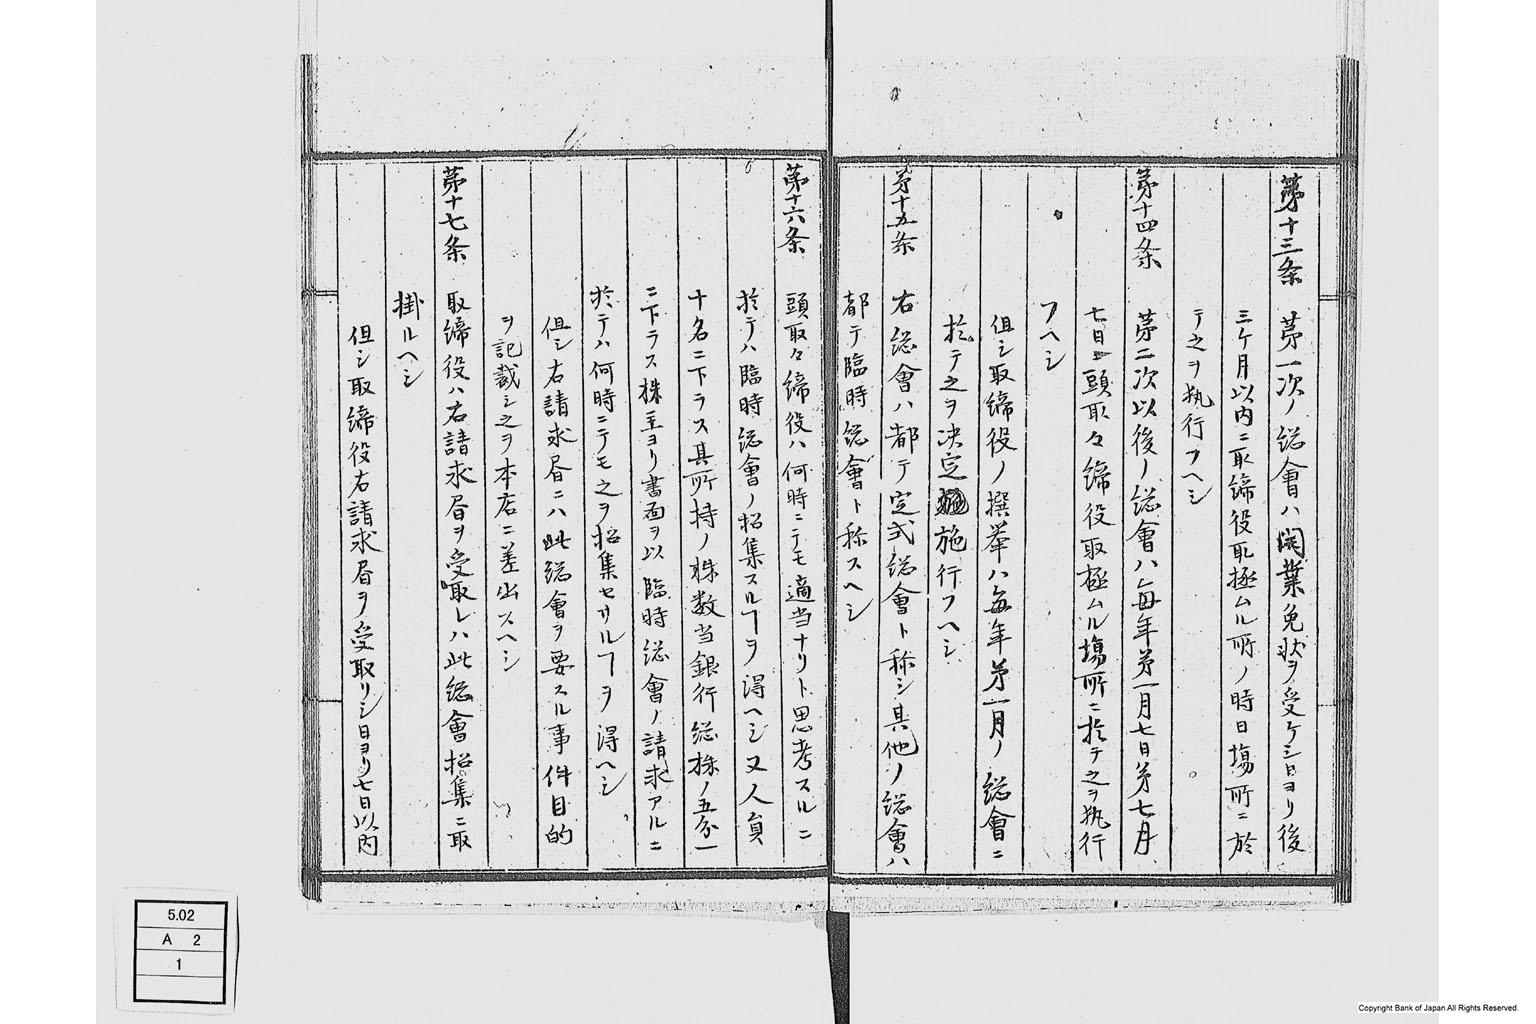 第十三条 第一次ノ総會ハ開業免状ヲ受ケシ日ヨリ後
三ケ月以内ニ取締役取極ムル所ノ時日場所ニ於
テ之ヲ執行フヘシ
第十四条 第二次以後ノ総會ハ毎年第一月七日第七月
七日ニ頭取々締役取極ムル場所ニ於テ之ヲ執行
フヘシ
但シ取締役ノ撰挙ハ毎年第一月ノ総會ニ
於テ之ヲ决定施行フヘシ
第十五条 右総會ハ都テ定式総會ト称シ其他ノ総會ハ
都テ臨時総會ト称スヘシ
第十六条 頭取々締役ハ何時ニテモ適当ナリト思考スルニ
於テハ臨時総會ノ招集スルヿヲ得ヘシ又人員
十名ニ下ラス其所持ノ株数当銀行総株ノ五分一
ニ下ラス株主ヨリ書面ヲ以臨時総會ノ請求アルニ
於テハ何時ニテモ之ヲ招集セリルヿヲ得ヘシ
但シ右請求書ニハ此総會ヲ要スル事件目的
ヲ記載シ之ヲ本店ニ差出スヘシ
第十七条 取締役ハ右請求書ヲ受取レハ此総會招集ニ取
掛ルヘシ
但シ取締役右請求書ヲ受取リシ日ヨリ七日以内
5.02
A 2
1
Copyright Bank of Japan All Rights Reserved.